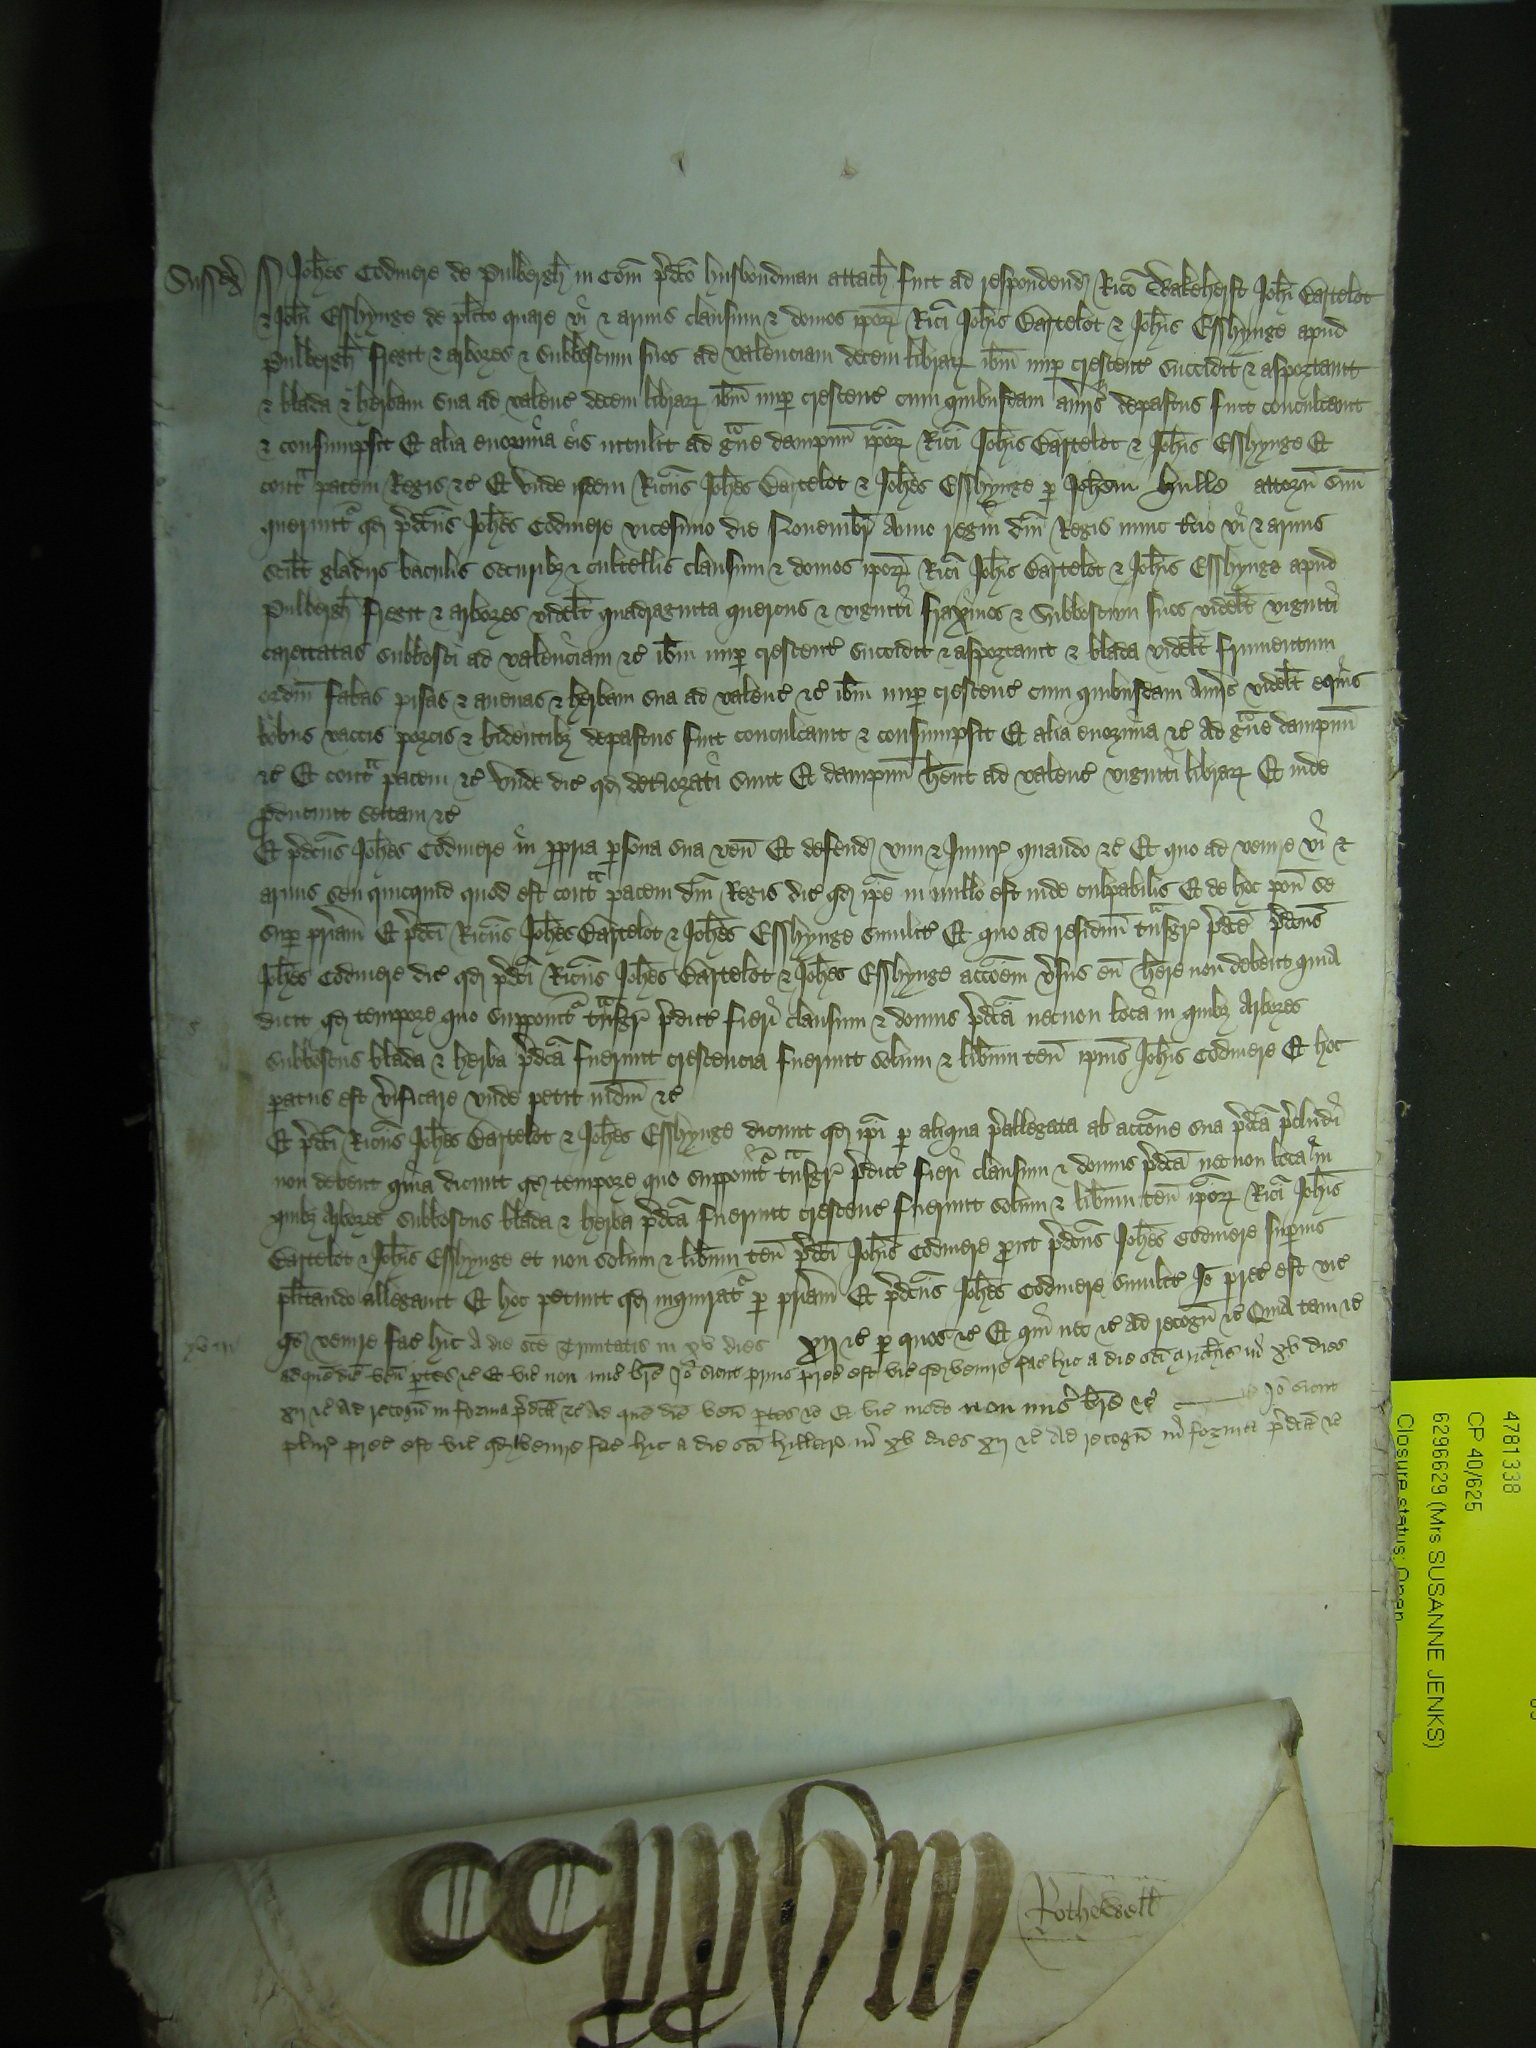 Sussex̄ ss Joh̄es Codmere de Pulbergh̄ in Com̄ p̄dc̄o husbondman attach̄ fuit ad respondend̄ Ric̄o Wakeherst Joh̄i Bartelot
& Joh̄i Esshynge de pl̄ito quare vi & armis clausum & domos ip̄or̄ Ric̄i Joh̄is Bartelot & Joh̄is Esshynge apud
Pulbergh̄ fregit & arbores & subboscum suos ad valenciam decem librar̄ ib̄m nup̄ crescent̄ succidit & asportauit
& blada & herbam sua ad valenc̄ decem librar̄ ib̄m nup̄ crescenc̄ cum quibusdam aūiis depastus fuit conculcauit
& consumpsit Et alia enormia eis intulit ad gᵃue dampnū ip̄or̄ Ric̄i Joh̄is Bartelot & Joh̄is Esshynge Et
contᵃ pacem Regis &c̄ Et vnde ijdem Ric̄us Joh̄es Bartelot & Joh̄es Esshynge p̄ Joh̄em Hulle attorn̄ suū
querunt̄ qd̄ p̄dc̄us Joh̄es Codmere vicesimo die Nouembr̄ Anno regni dn̄i Regis nunc t̄cio vi & armis
scil̄t gladijs baculis securibȝ & cultellis clausum & domos ip̄or̄ Ric̄i Joh̄is Bartelot & Joh̄is Esshynge apud
Pulbergh̄ fregit & arbores videl̄t quadraginta quercus & viginti fraxinos & Subboscum suos videl̄t viginti
carectatas subbosci ad valenciam &c̄ ib̄m nup̄ crescent̄ succidit & asportauit & blada videl̄t frumentum
ordiū fabas pisas & auenas & herbam sua ad valenc̄ &c̄ ib̄m nup̄ crescenc̄ cum quibusdam Aūiis videl̄t equis
bobus vaccis porcis & bidentibȝ depastus fuit conculcauit & consumpsit Et alia enormia &c̄ Ad gᵃue dampnū
&c̄ Et contᵃ pacem &c̄ Vnde dic̄ qd̄ det̄iorati sunt Et dampnū h̄ent ad valenc̄ viginti librar̄ Et inde
p̄ducunt sectam &c̄
Et p̄dc̄us Joh̄es Codmere in p̄pria p̄sona sua ven̄ Et defend̄ vim & Iniur̄ quando &c̄ Et quo ad venire vi &
armis seu quicquid quod est contᵃ pacem dn̄i Regis dic̄ qd̄ ip̄e in nullo est inde culpabilis Et de hoc pon̄ se
sup̄ pr̄iam Et p̄dc̄i Ric̄us Joh̄es Bartelot & Joh̄es Esshynge similit̄ Et quo ad residuū tᵃnsgr̄ p̄dc̄e p̄dc̄us
Joh̄es Codmere dic̄ qd̄ p̄dc̄i Ric̄us Joh̄es Bartelot & Joh̄es Esshynge acc̄oem v̄sus eū h̄ere non debent quia
dicit qd̄ tempore quo supponit̄ tᵃnsgr̄ p̄dict̄ fieri clausum & domus p̄dc̄a necnon loca in quibȝ Arbores
subboscus blada & herba p̄dc̄a fuerunt crescencia fuerunt solum & lib̄um ten̄ ip̄ius Joh̄is Codmere Et hoc
paratus est v̄ificare vnde petit iudm̄ &c̄
Et p̄dc̄i Ric̄us Joh̄es Bartelot & Joh̄es Esshynge dicunt qd̄ ip̄i p̄ aliqua p̄allegata ab acc̄one sua p̄dc̄a p̄cludi
non debent quia dicunt qd̄ tempore quo supponit̄ tᵃnsgr̄ p̄dict̄ fieri clausum & domus p̄dc̄a necnon loca in
quibȝ Arbores subboscus blada & herba p̄dc̄a fuerunt crescenc̄ fuerunt solum & lib̄um ten̄ ip̄or̄ Ric̄i Joh̄is
Bartelot & Joh̄is Esshynge et non solum & lib̄um ten̄ p̄dc̄i Joh̄is Codmere prout p̄dc̄us Joh̄es Codmere sup̄ius
pl̄itando allegauit Et hoc petunt qd̄ inquirat̄ p̄ pr̄iam Et p̄dc̄us Joh̄es Codmere similit̄ Io p̄cept̄ est vic̄
qd̄ venire fac̄ hic A die sc̄e Trinitatis in xv dies xij &c̄ p̄ quos &c̄ Et qui nec &c̄ Ad recogn̄ &c̄ Quia tam &c̄
Ad quē diē ven̄ p̄tes &c̄ Et vic̄ non mis̄ br̄e Io sicut prius prec̄ est vic̄ qd̄ venire fac̄ hic a die sc̄i Mich̄is in xv dies
xij &c̄ Ad recogn̄ in forma p̄dc̄a &c̄ Ad quē diē ven̄ p̄tes &c̄ Et vic̄ modo non mis̄ br̄e &c̄ Io sicut
plur̄ prec̄ est vic̄ qd̄ venire fac̄ hic a die sc̄i Hillar̄ in xv dies xij &c̄ Ad recogn̄ in forma p̄dc̄a &c̄
Rothewell
4781338
CP 40/625
6296629 (Mrs SUSANNE JENKS)
Closure status: Open